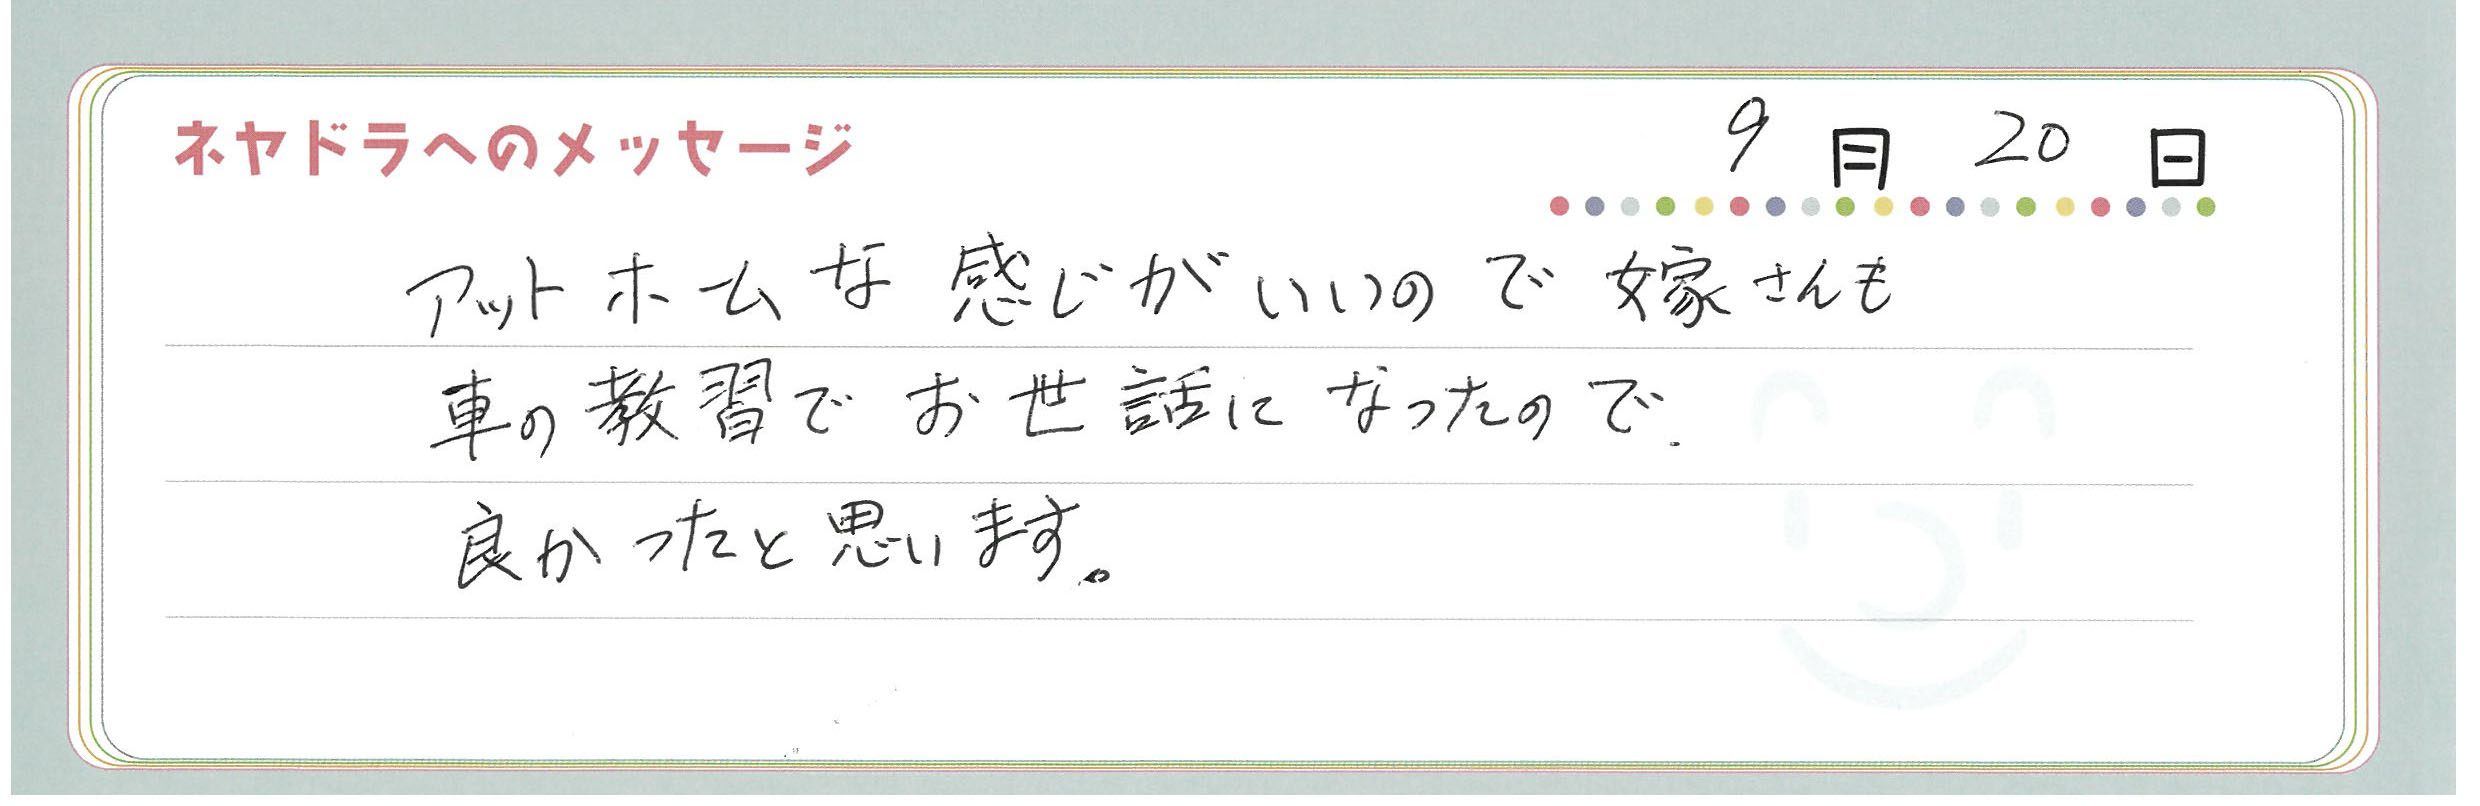 ネヤドラへのメッセージ
9月20日
アットホームな感じがいいので嫁さんも
車の教習でお世話になったので.
良かったと思います。